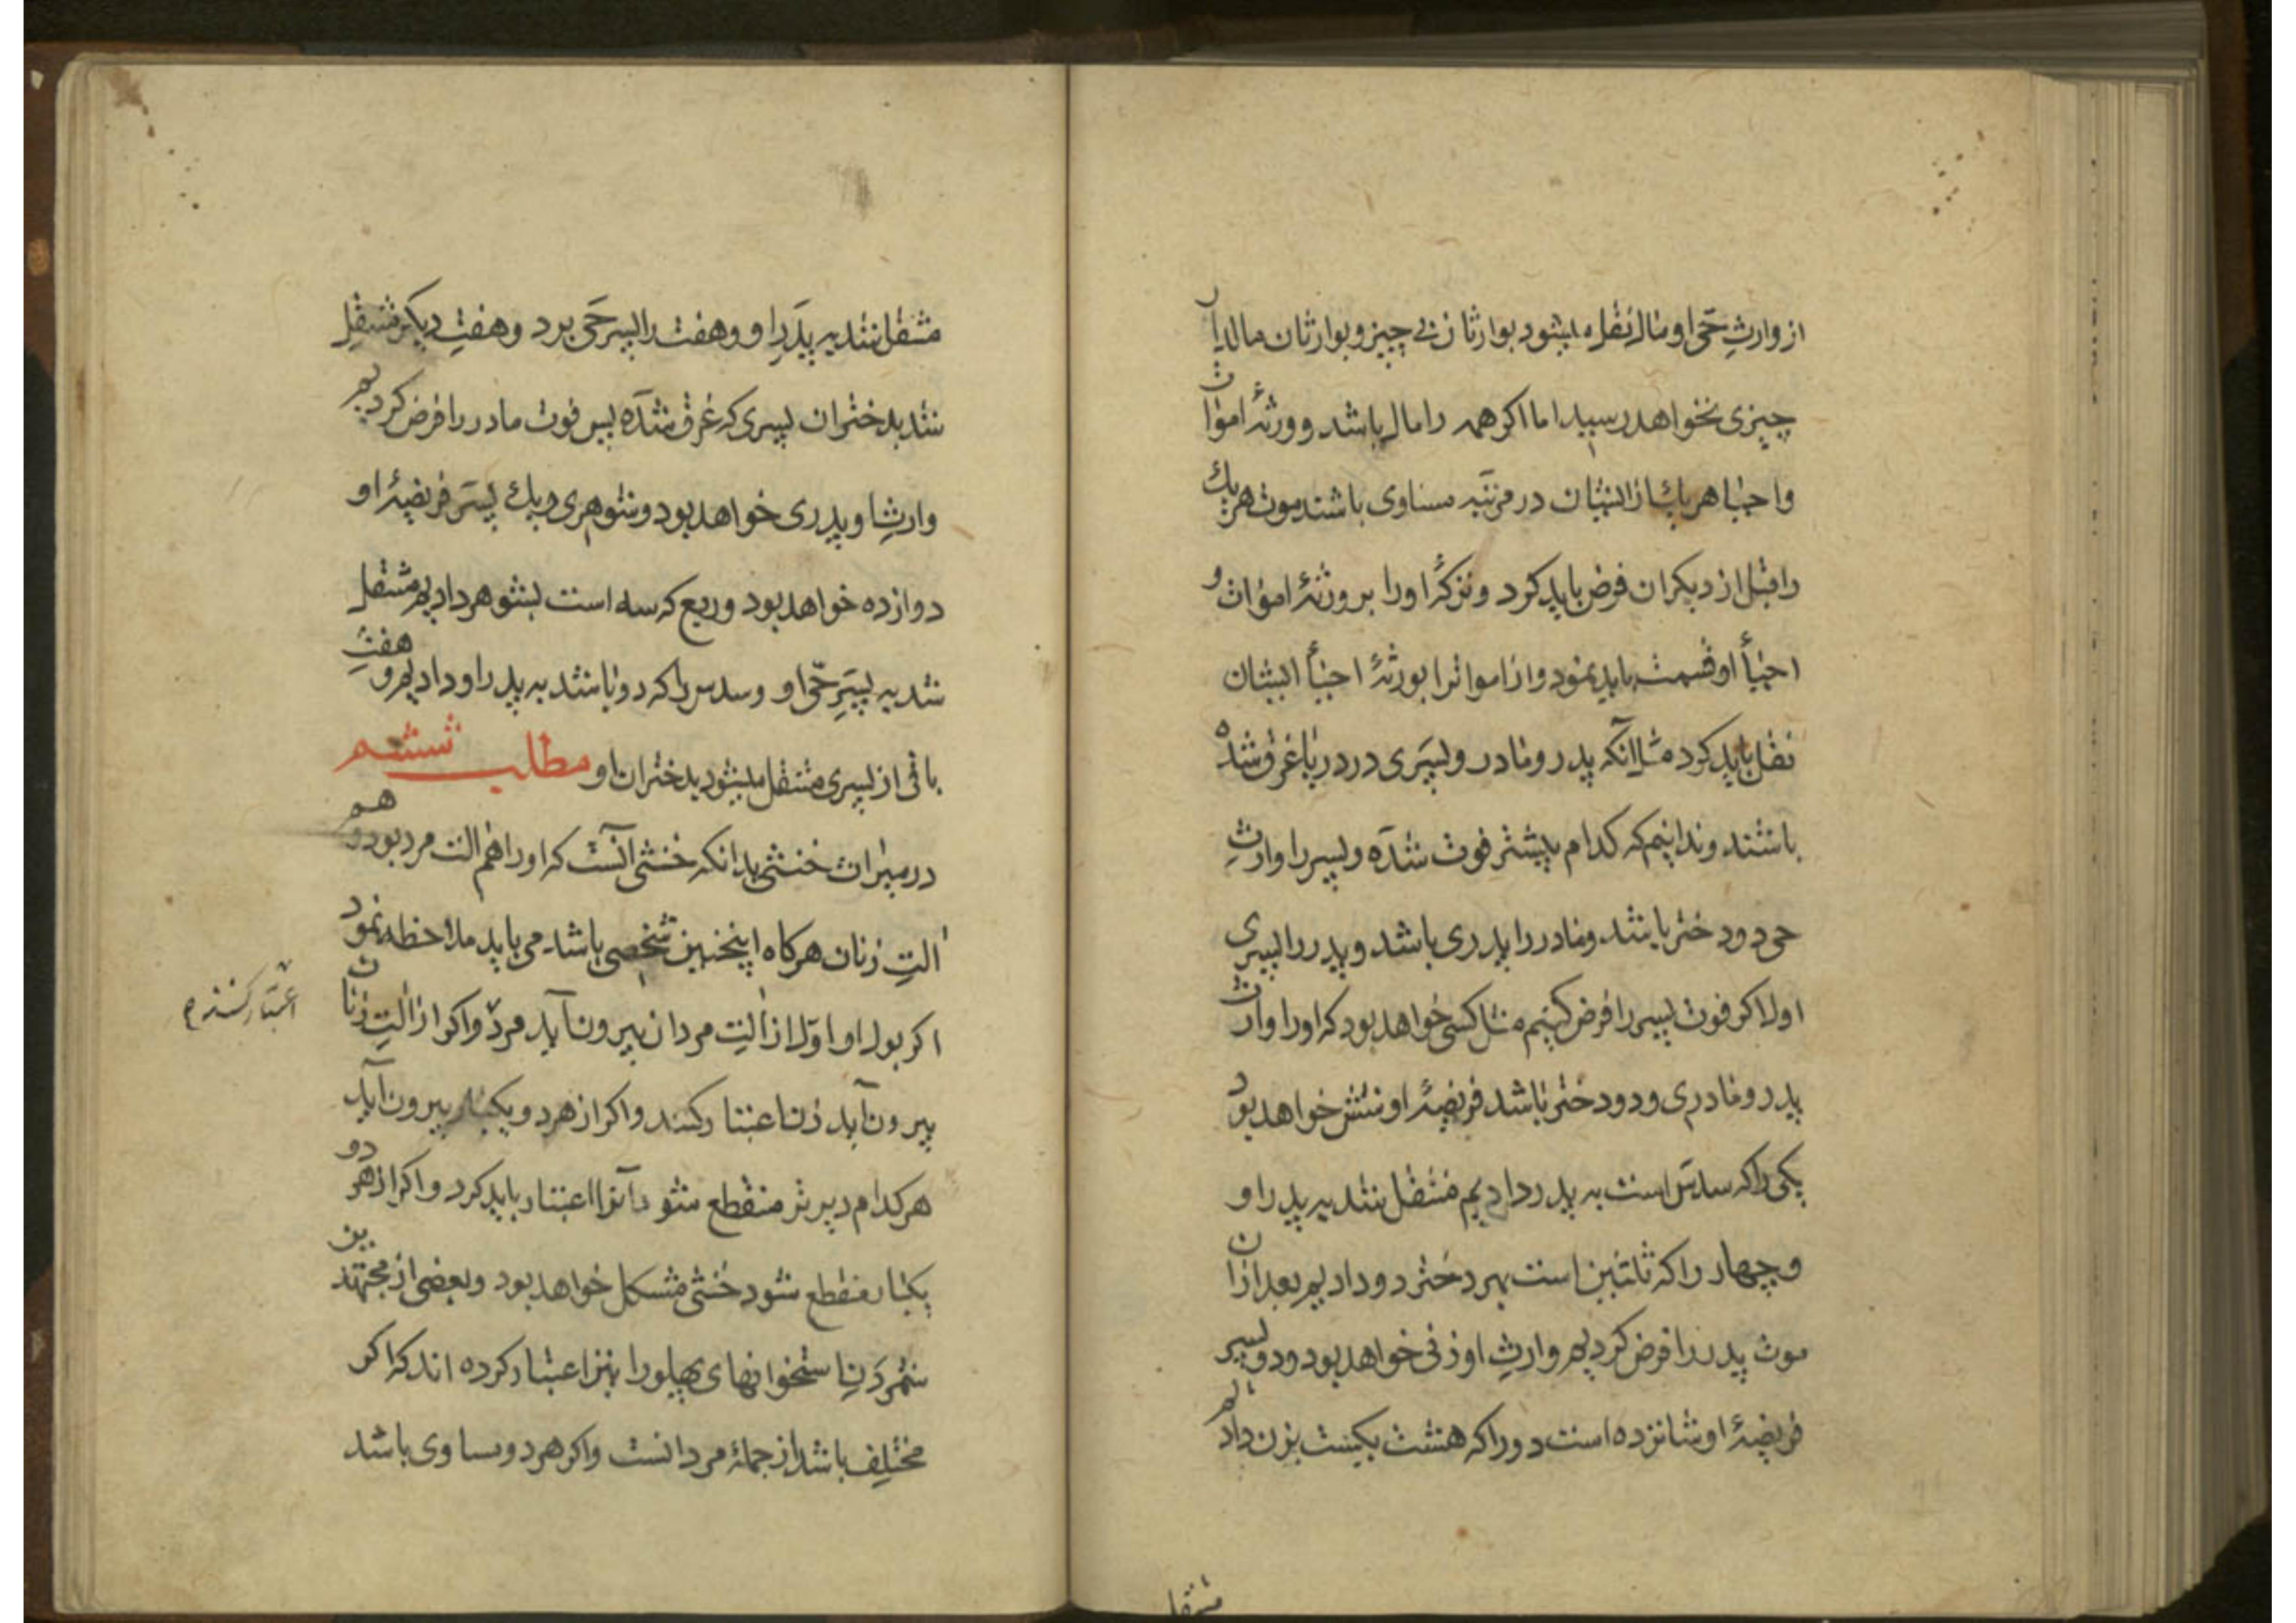 از وارثِ حَی او مال نقل میشود بوارثان بی چیز و بوارثان مالدار
چیزی نخواهد رسید اما اکر همه را مال باشد و ورثهٔ اموات
و احیا هر یك از ایشان در مرتبه مساوی باشند موت هر یك
را قبل از دیکران فرض باید کرد و ترکهٔ او را بر ورثهٔ اموات و
احیأ او قسمت باید نمود و از اموات را بورثهٔ احیأ ایشان
نقل باید کرد مثلا آنکه پدر و مادر و پسَری در دریا غرق شده
باشند و ندانیم که کدام پیشتر فوت شدَه و پسر را وارثِ
حی دو دختر باشد و مادر را پدری باشد و پدر را پسری
اولا اکر فوت پسر را فرض کنیم مثل کسی خواهد بود که او را وارث
پدر و مادری و دو دختر باشد فریضهٔ او شش خواهد بود
یکی را که سدس است به پدر دادیم منتقل شد به پدر او
و چهار را که ثلثین است بهر دختر دو دادیم بعد از ان
موت پدر را فرض کردیم وارثِ او زنی خواهد بود و دو پسر
فریضهٔ او شانزده است دو را که هشت یکست بزن دادیم
منتقل
منتقل شد به پدَرِ او و هفت را پسر حَی برد و هفتِ دیکر منتقل
شد بدختران پسری که غرق شدَه پس فوت مادر را فرض کردیم
وارثِ او پدری خواهد بود و شوهری و یك پسَر فریضهٔ او
دوازده خواهد بود و ربع که سه است بشوهر دادیم منتقل
شد به پسَرِ حّی او و سدس را که دو باشد به پدر او دادیم و هفتِ
باقی از پسری منتقل میشود بدختران او مطلب ششم
در میراث خنثی بدانکه خنثی آنست که او را هم الت مرد بود و هم
التِ زنان هرکاه اینچنین شخصی باشد می باید ملاحظه نمود
اکر بول او اوّلا از التِ مردان بیرون آید مردّ و اکر از التِ زنان
بیرون آید زن اعتبار کنند و اکر از هر دو یکبار بیرون آید
هر کدام دیرتر منقطع شود آنرا اعتبار باید کرد و اکر از هر دو
یکبار منقطع شود خنثی مشکل خواهد بود و بعضی از مجتهدین
شمردَنِ استخوانهای پهلو را نیز اعتبار کرده اند که اکر
مختلِف باشد از جملهٔ مردانست و اکر هر دو مساوی باشد
اعتبار کنند